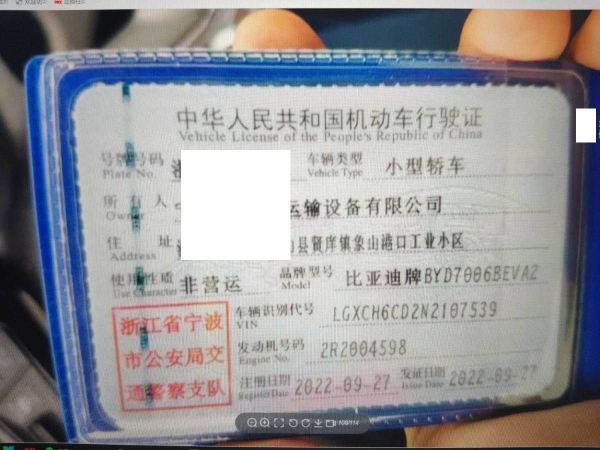 中华人民共和国机动车行驶证
Vehicle License of the People's Republic of China
号牌号码 车辆类型 小型轿车
Plate No. Vehicle Type
所有人 运输设备有限公司
Owner
住址 县贤庠镇象山港口工业小区
Address
使用性质 非营运 品牌型号 比亚迪牌BYD7006BEVA2
Use Character Model
浙江省宁波
市公安局交
通警察支队
车辆识别代号 LGXCH6CD2N2107539
VIN
发动机号码 2R2004598
Engine No.
注册日期 2022-09-27 发证日期 2022-09-27
Register Date Issue Date
108/114